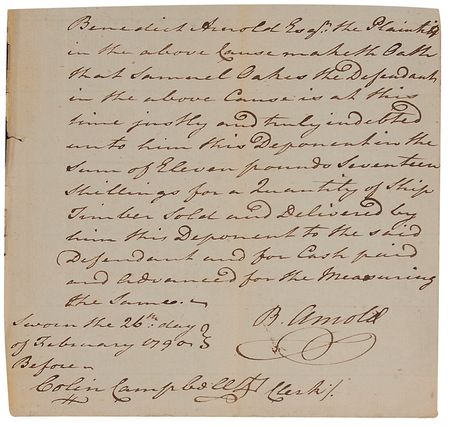 Benedict Arnold Esqr. the Plaintiff
in the above Cause maketh Oath
that Samuel Oakes the Defendant
in the above Cause is at this
time justly and truly indebted
unto him this Deponent in the
Sum of Eleven pounds Seventeen
Shillings for a Quantity of Ship
Timber Sold and Delivered by
him this Deponent to the said
Defendant and for Cash paid
and Advanced for the Measuring
the Same.
Sworn the 26th. day
of February 1790
Before
B. Arnold
Colin Campbell Clerk